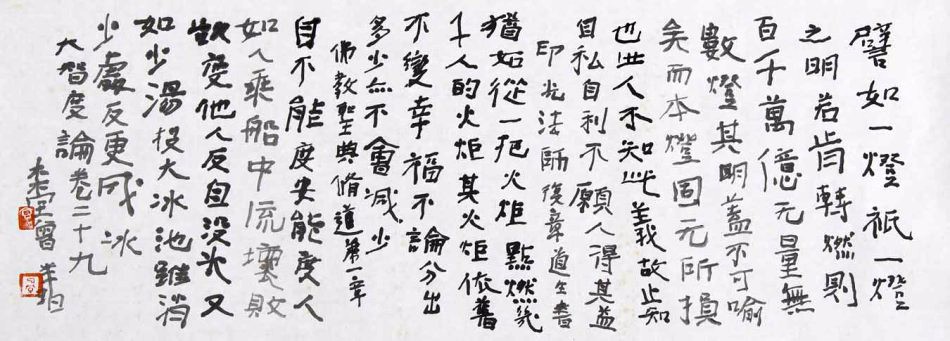 譬如一燈祇一燈
之明若肯轉燃則
百千萬億無量無
數燈其明蓋不可喻
矣而本燈固无所損
也世人不知此義故止知
自私自利不願人得其益
印光法師復章道生書
猶如從一把火炬點燃幾
千人的火炬其火炬依舊
不變幸福不論分出
多少亦不會減少
佛教聖典脩道第一章
自不能度安能度人
如人乘船中流壞敗
欲度他人反自没水又
如少湯投大冰池雖消
少處反更成冰
大智度論卷二十九